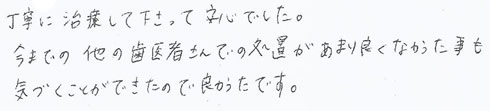 丁寧に治療して下さって安心でした。
今までの他の歯医者さんでの処置があまり良くなかった事も
気づくことができたので良かったです。